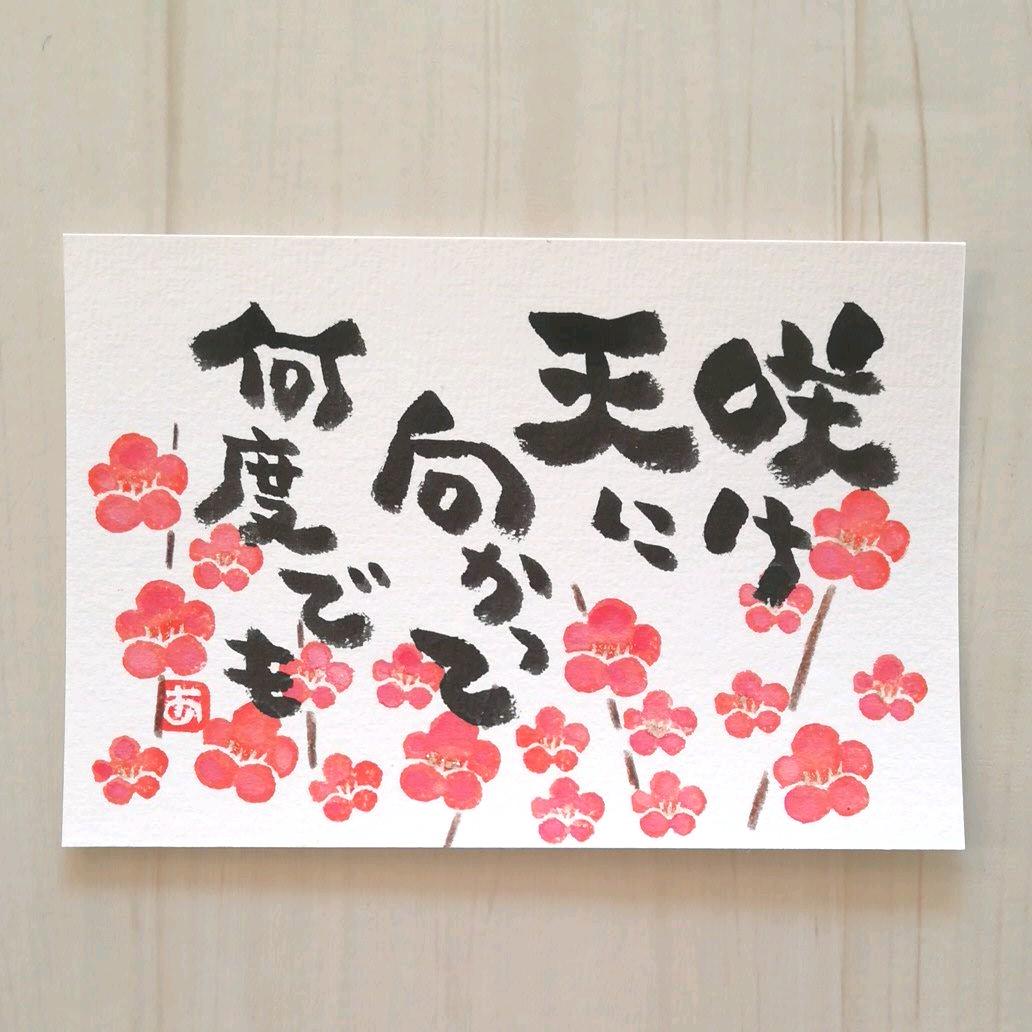 咲け
天に
向かって
何度でも
あ